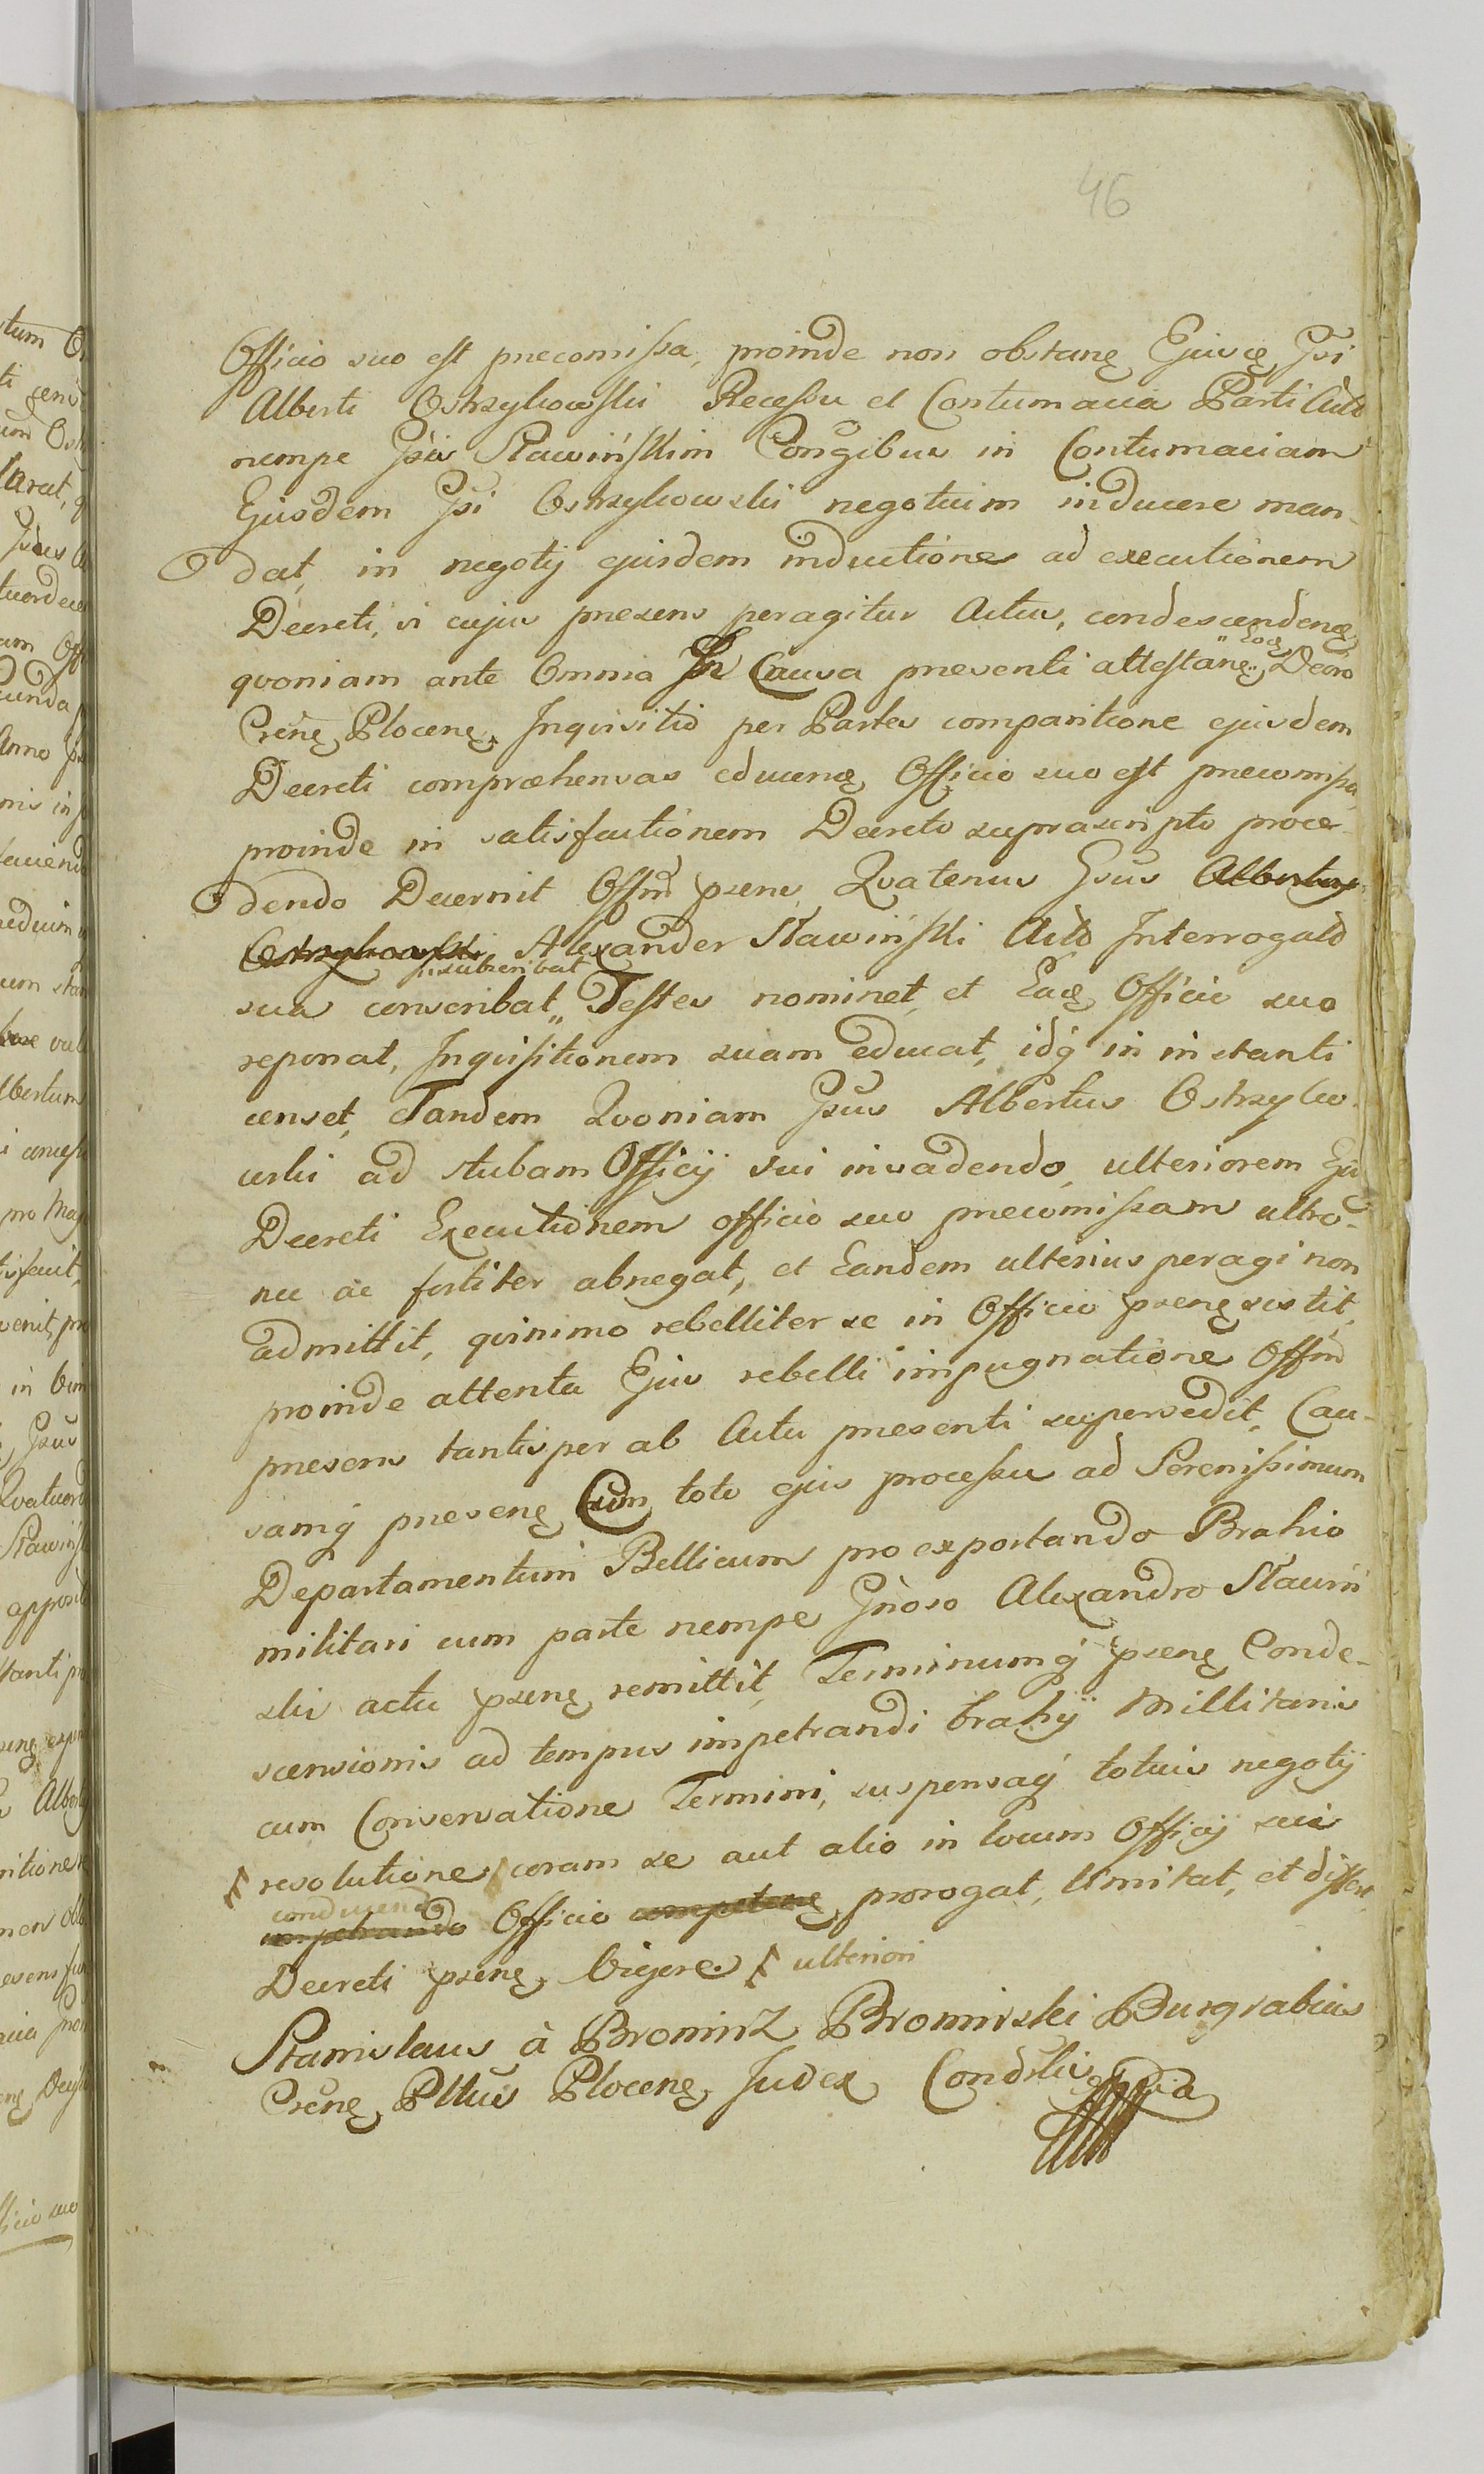 46
Officio suo est precomissa, proinde non obstanę Ejuscę Gsi
Alberti Ostrzykowski Recessu et Contumacia Parti
nempe Gsis Sławińskim Conŏgibus in Contumaciam
Ejusdem Gsi Ostrzykowski negotium inducere man-
dat, in negotij ejusdem inductione ad executionem
Decreti, vi cujus presens peragitur Actus, condescendendę
quoniam ante Omnia In Causa presenti attestanę Decro
Crenę Plocenę Inquisitio per Partes comparitione ejusdem
Decreti compræhensas educenę Officio suo est precomissa,
proinde in satisfactionem Decreto suprascripto proce-
dendo Decernit Offm psens Qvatenus Gsus Albertus
Ostrzykowski Alexander Sławiński Acto Interrogato
subscribat
sua conscribat,, Testes nominet, et Eacę Officio suo
reponat, Inquisitionem suam educat, idq in instanti
censet, Tandem Qvoniam Gsus Albertus Ostrzyko-
wski ad stubam Officij sui invadendo, ulteriorem Ejd
Decreti Executionem officio suo precomissam ultro-
nee ac fortiter abnegat, et Eandem ulterius peragi non
admittit, qvinimo rebelliter se in Officio psenę sistit,
proinde attenta Ejus rebelli impugnatione Offm
presens tantisper ab Actu presenti supersedit, Cau-
samq presenę Cum toto ejus processu ad Serenissimum
Departamentum Bellicum pro exportando Brahio
militari cum parte nempe Gnoso Alexandro Sławiń
ski actu psenę remittit, Terminumq psenę Conde-
scensionis ad tempus impetrandi brahij Millitaris
cum Conservatione Termini, suspensaq totius negotij
resolutione coram se aut alio in locum Officij sui
conducend
impetrando Officio competenę prorogat, limitat, et differt
Decreti psenę Vigore. ulteriori
Stanislaus à Bromirz Bromirski Burgrabius
Crenę Pltus Plocenę Judex Condŭlis